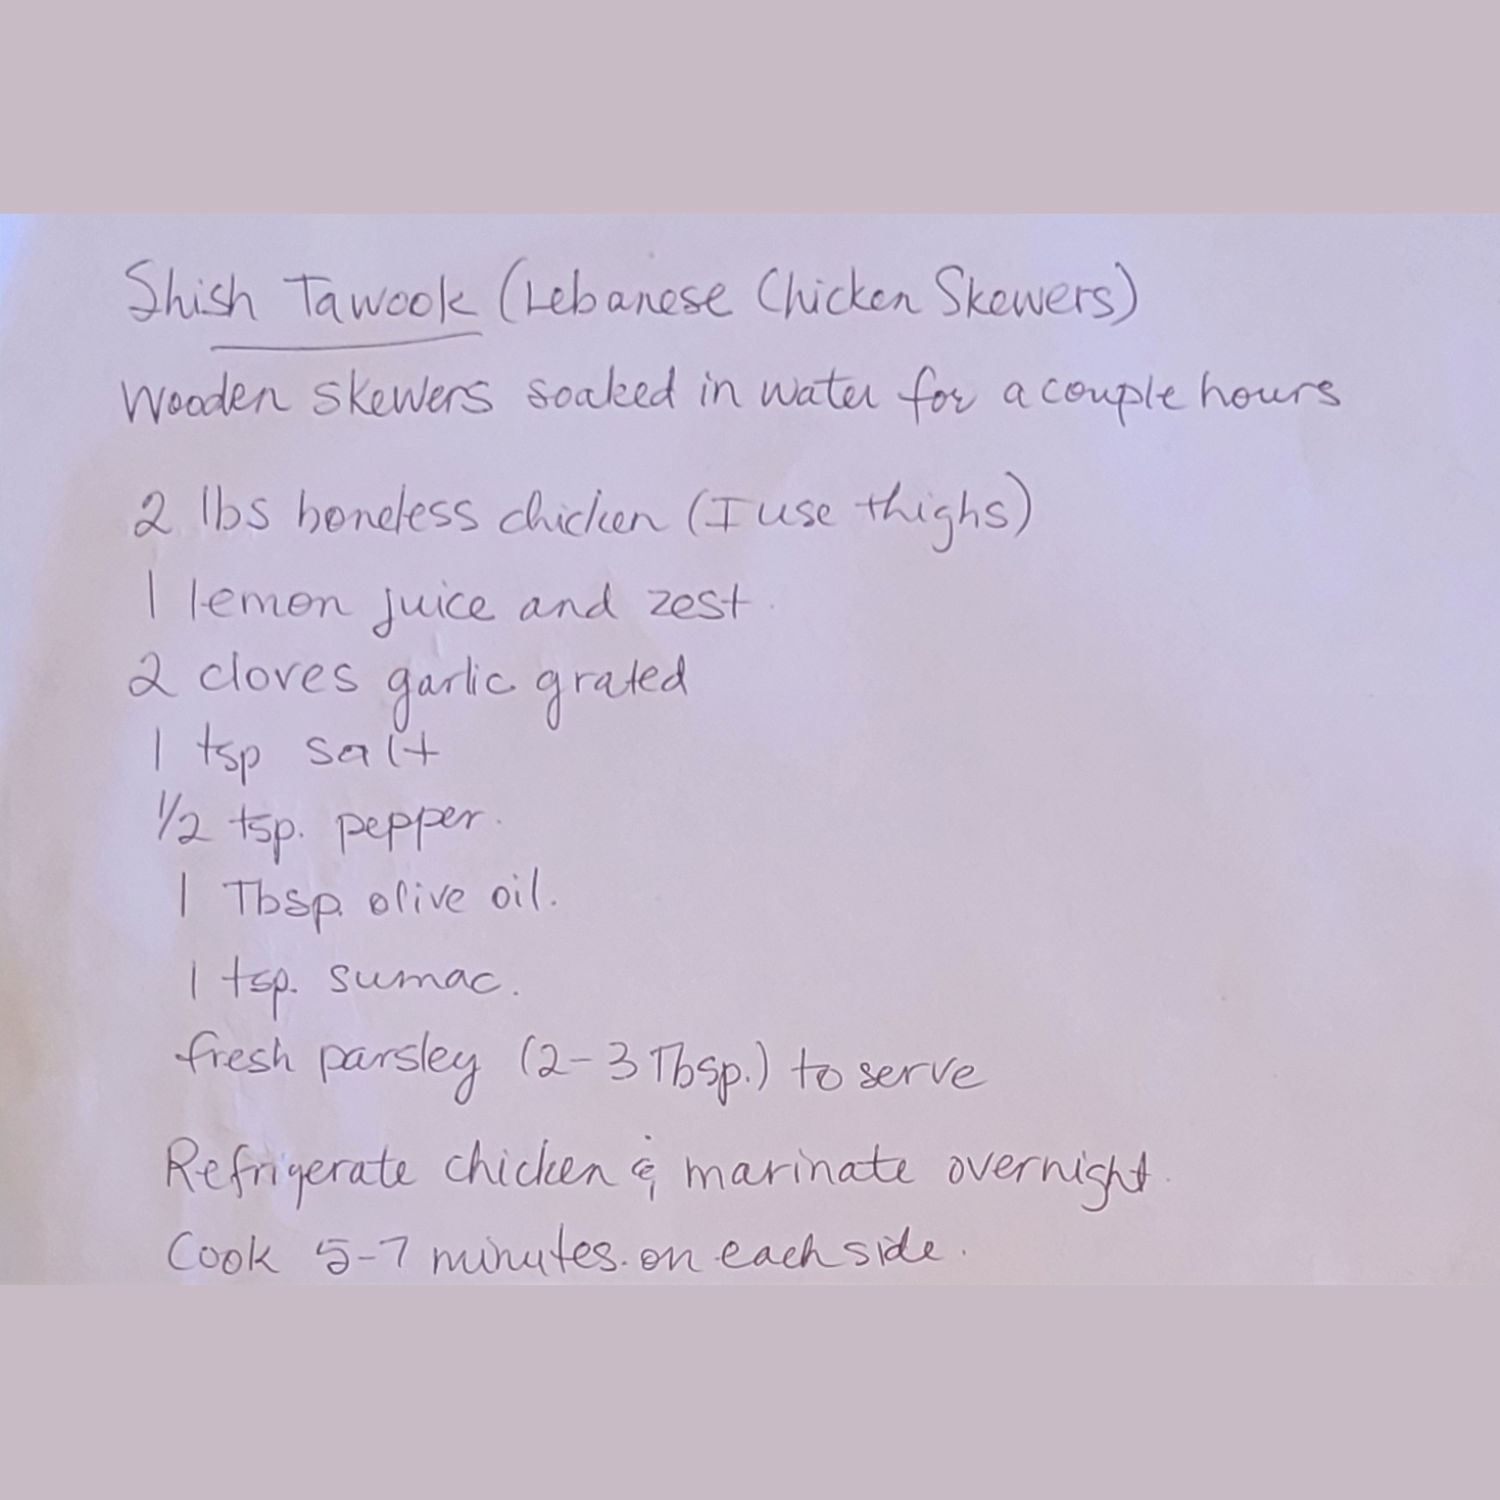 Shish Tawook (Lebanese Chicken Skewers)
Wooden skewers soaked in water for a couple hours
2 lbs boneless chicken (I use thighs)
1 lemon juice and zest
2 cloves garlic grated
1 tsp salt
1/2 tsp. pepper.
1 Tbsp. olive oil.
1 tsp. sumac.
fresh parsley (2-3 Tbsp.) to serve
Refrigerate chicken & marinate overnight.
Cook 5-7 minutes on each side.